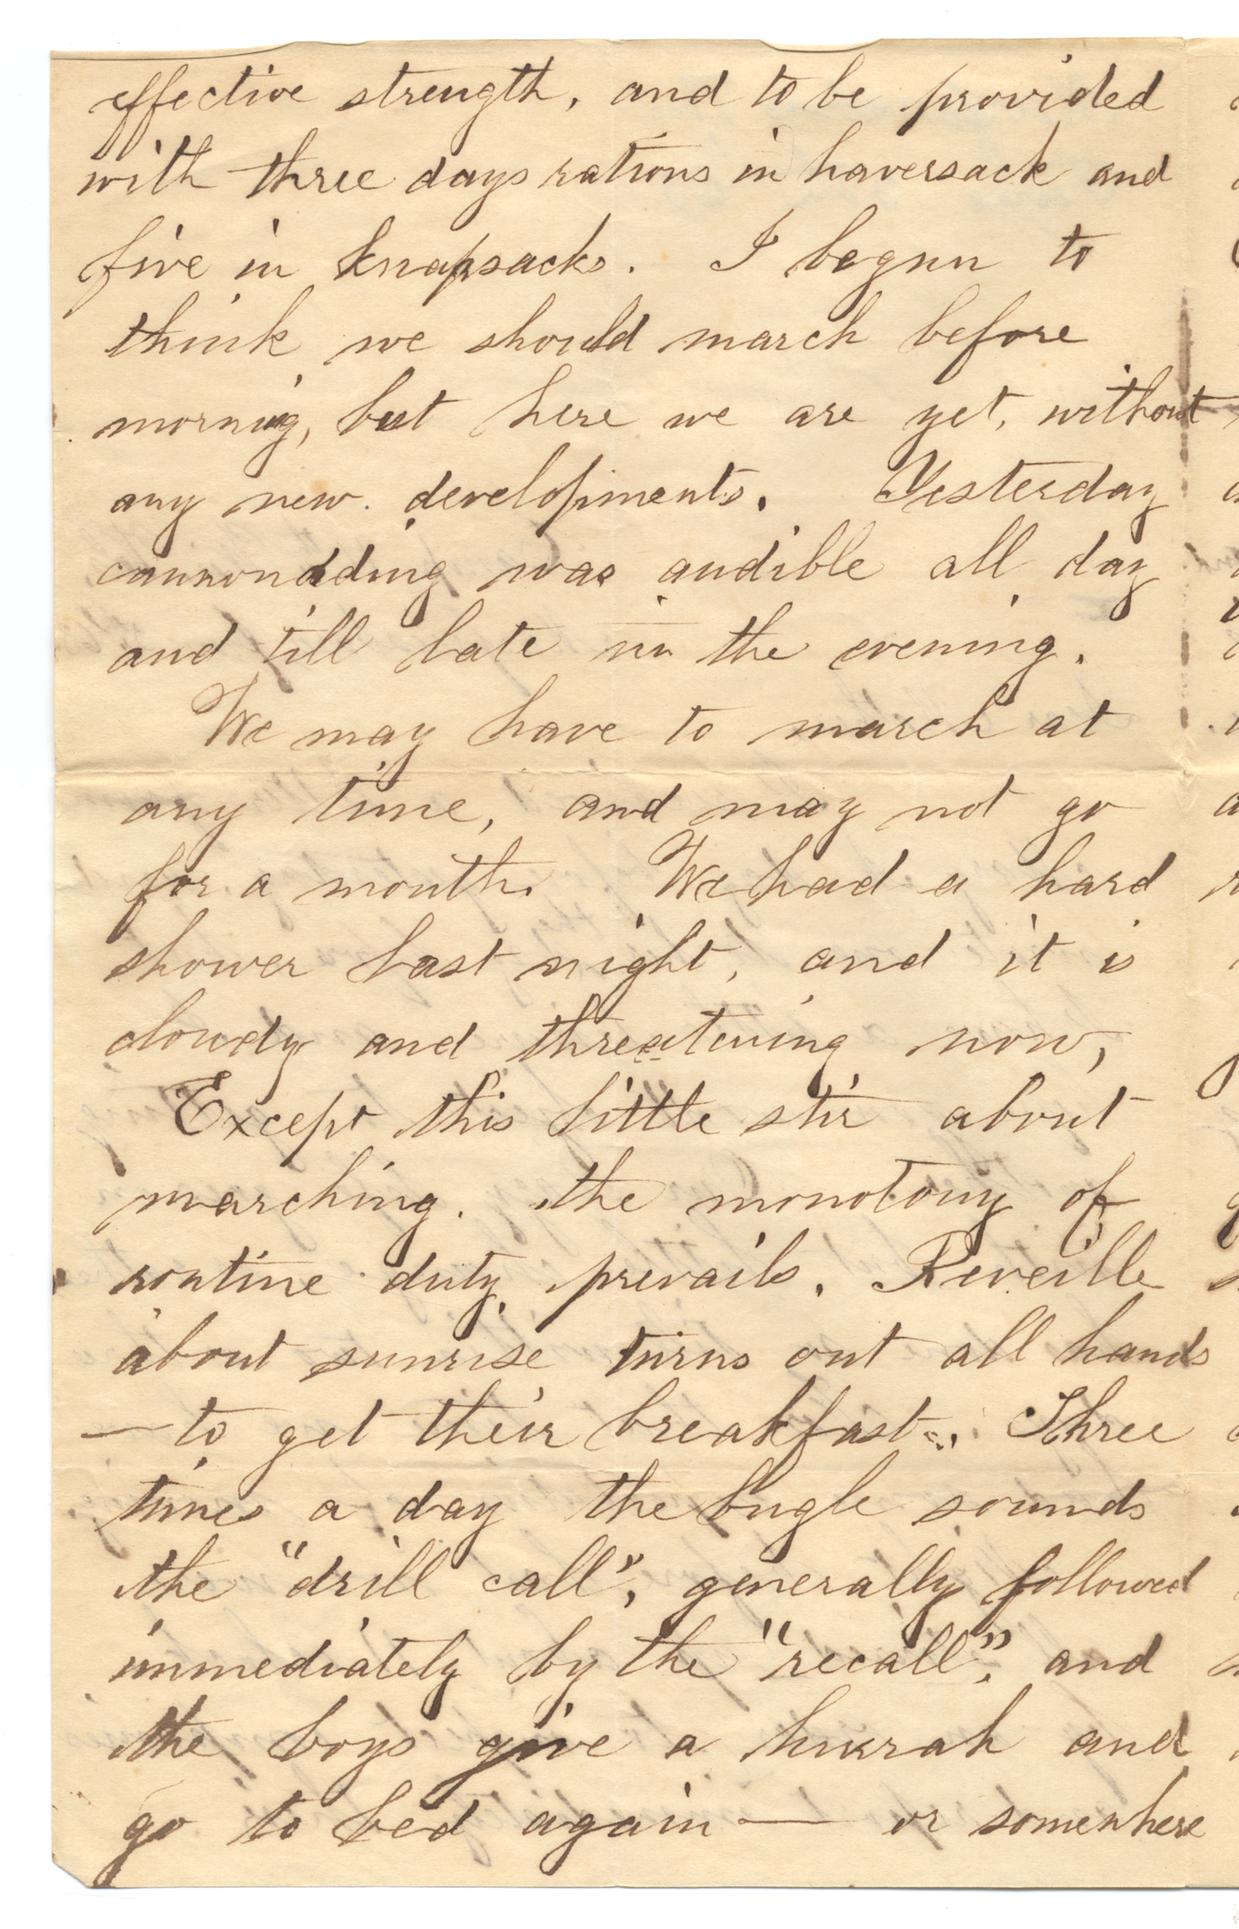 effective strength, and to be provided
with three days rations in haversack and
five in knapsacks. I began to
think we should march before
morning, but here we are yet, without
any new developments. Yesterday
cannonading was audible all day
and till late in the evening.
We may have to march at
any time, and may not go
for a month. We had a hard
shower last night, and it is
cloudy and threatening now,
Except this little stir about
marching. the monotony of
routine duty prevails. Reveille
about sunrise turns out all hands
— to get their breakfast. Three
times a day the bugle sounds
the "drill call", generally followed
immediately by the "recall", and
the boys give a hurrah and
go to bed again — or somewhere